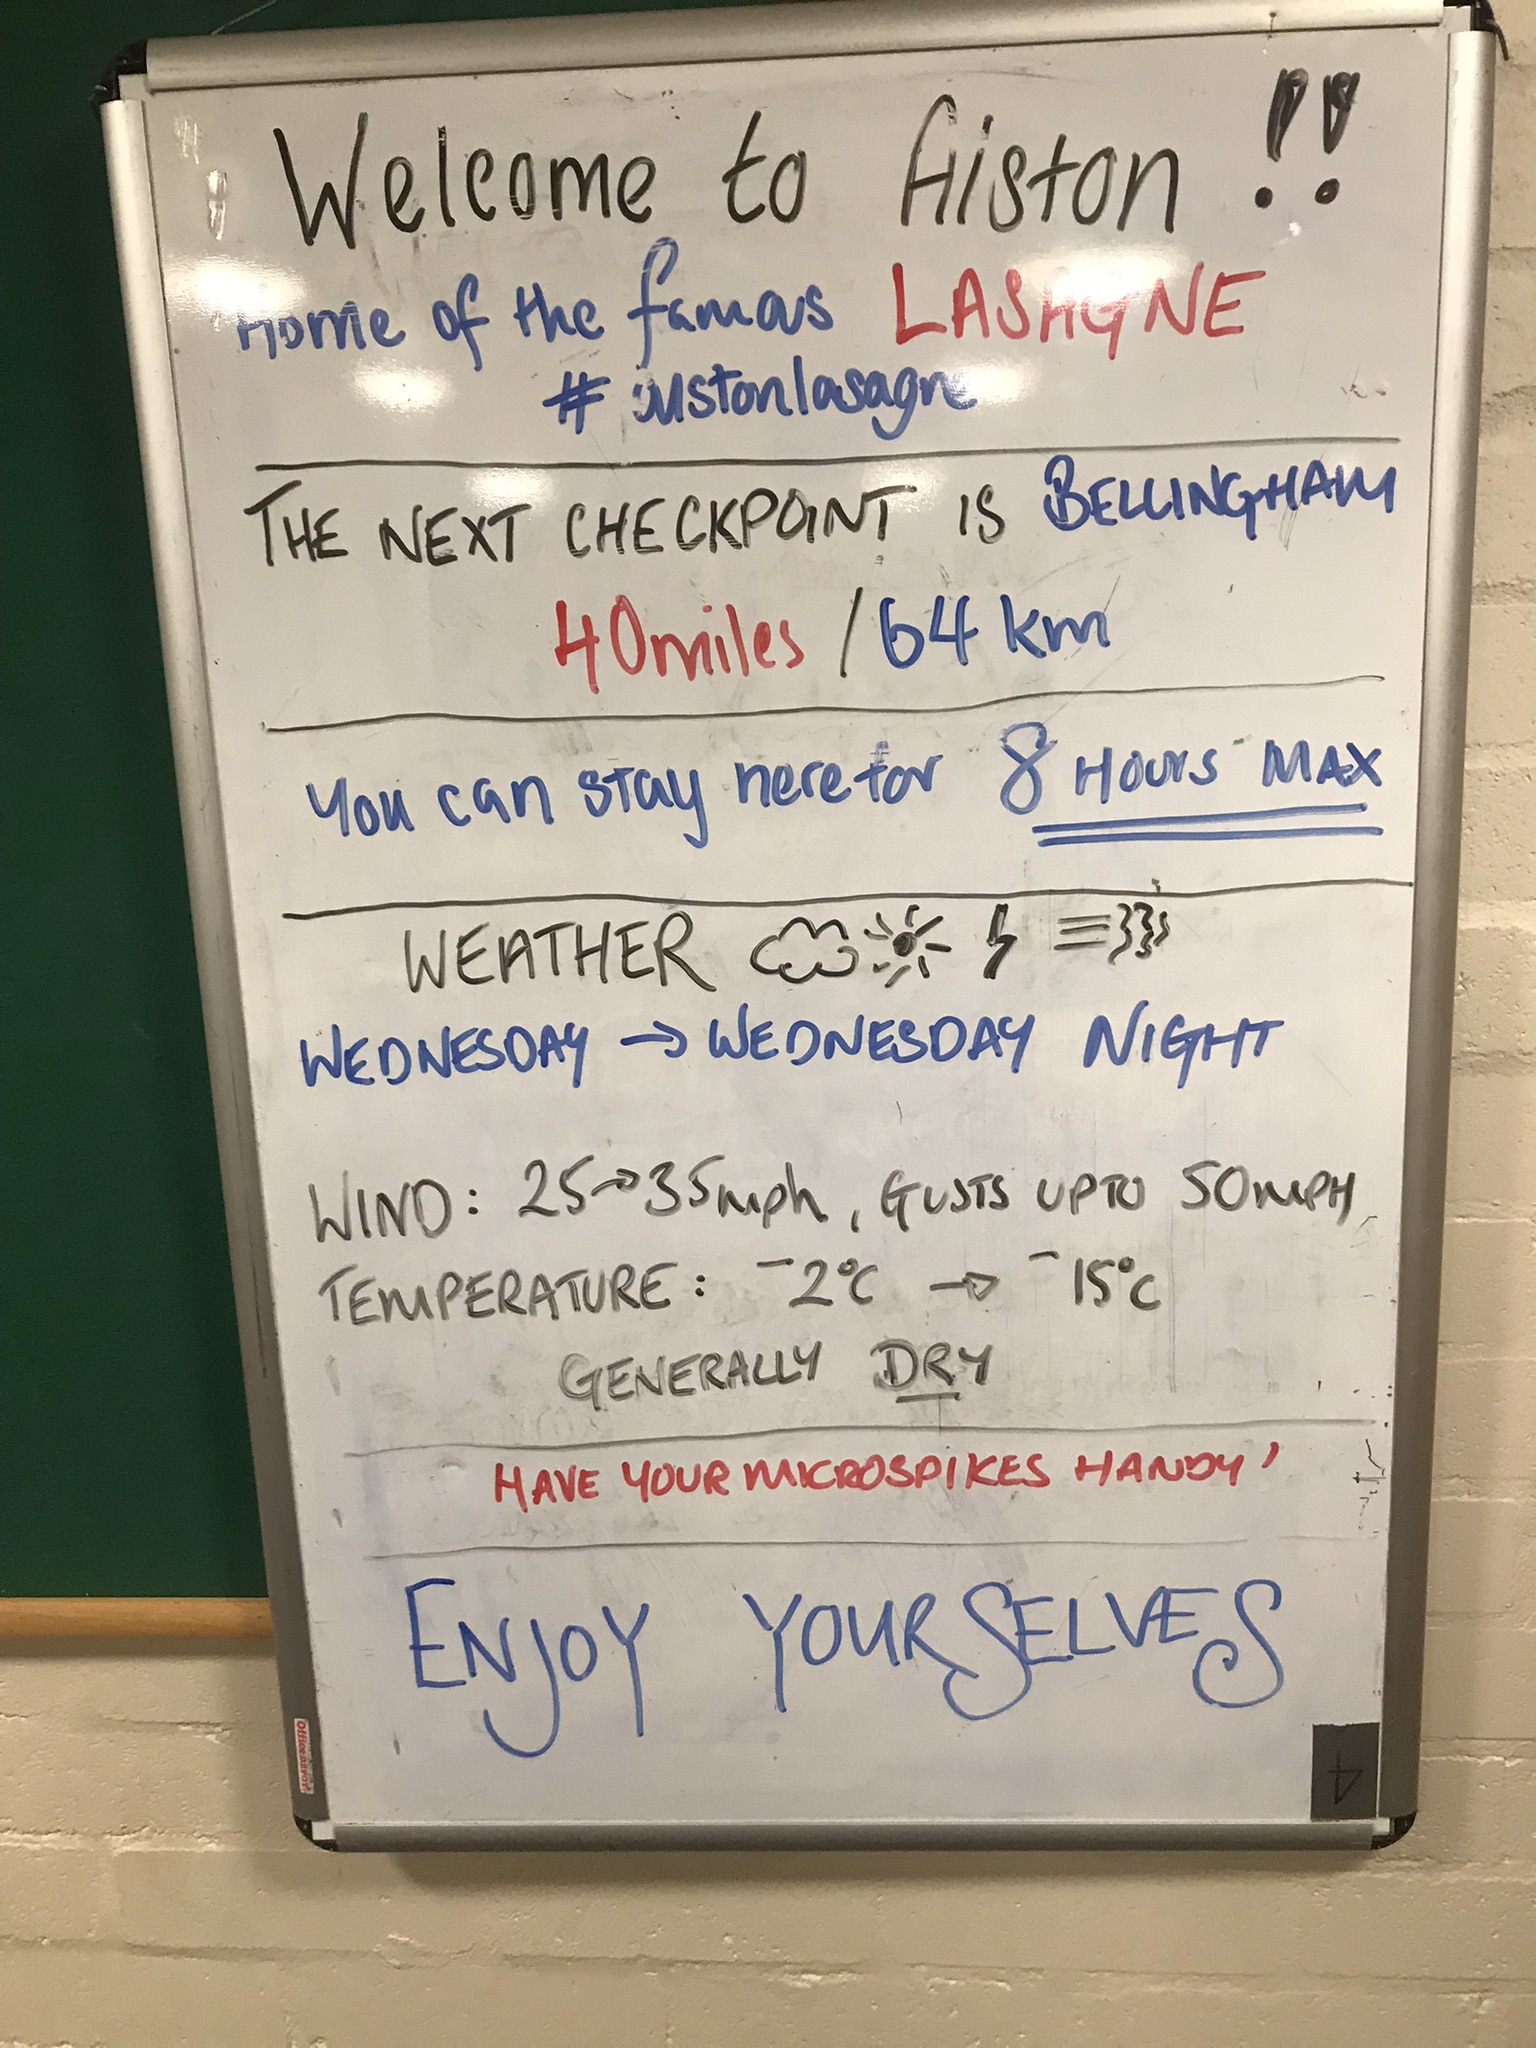 Welcome to Alston !!
Home of the famous LASAGNE
# alstonlasagne
THE NEXT CHECKPOINT IS BELLINGHAM
40miles / 64 km
You can stay here for 8 HOURS MAX
WEATHER
WEDNESDAY → WEDNESDAY NIGHT
WIND: 25→35mph, GUSTS UPTO 50MPH
TEMPERATURE: -2°C → -15°C
GENERALLY DRY
HAVE YOUR MICROSPIKES HANDY'
ENJOY YOURSELVES
Office DEPOT
4